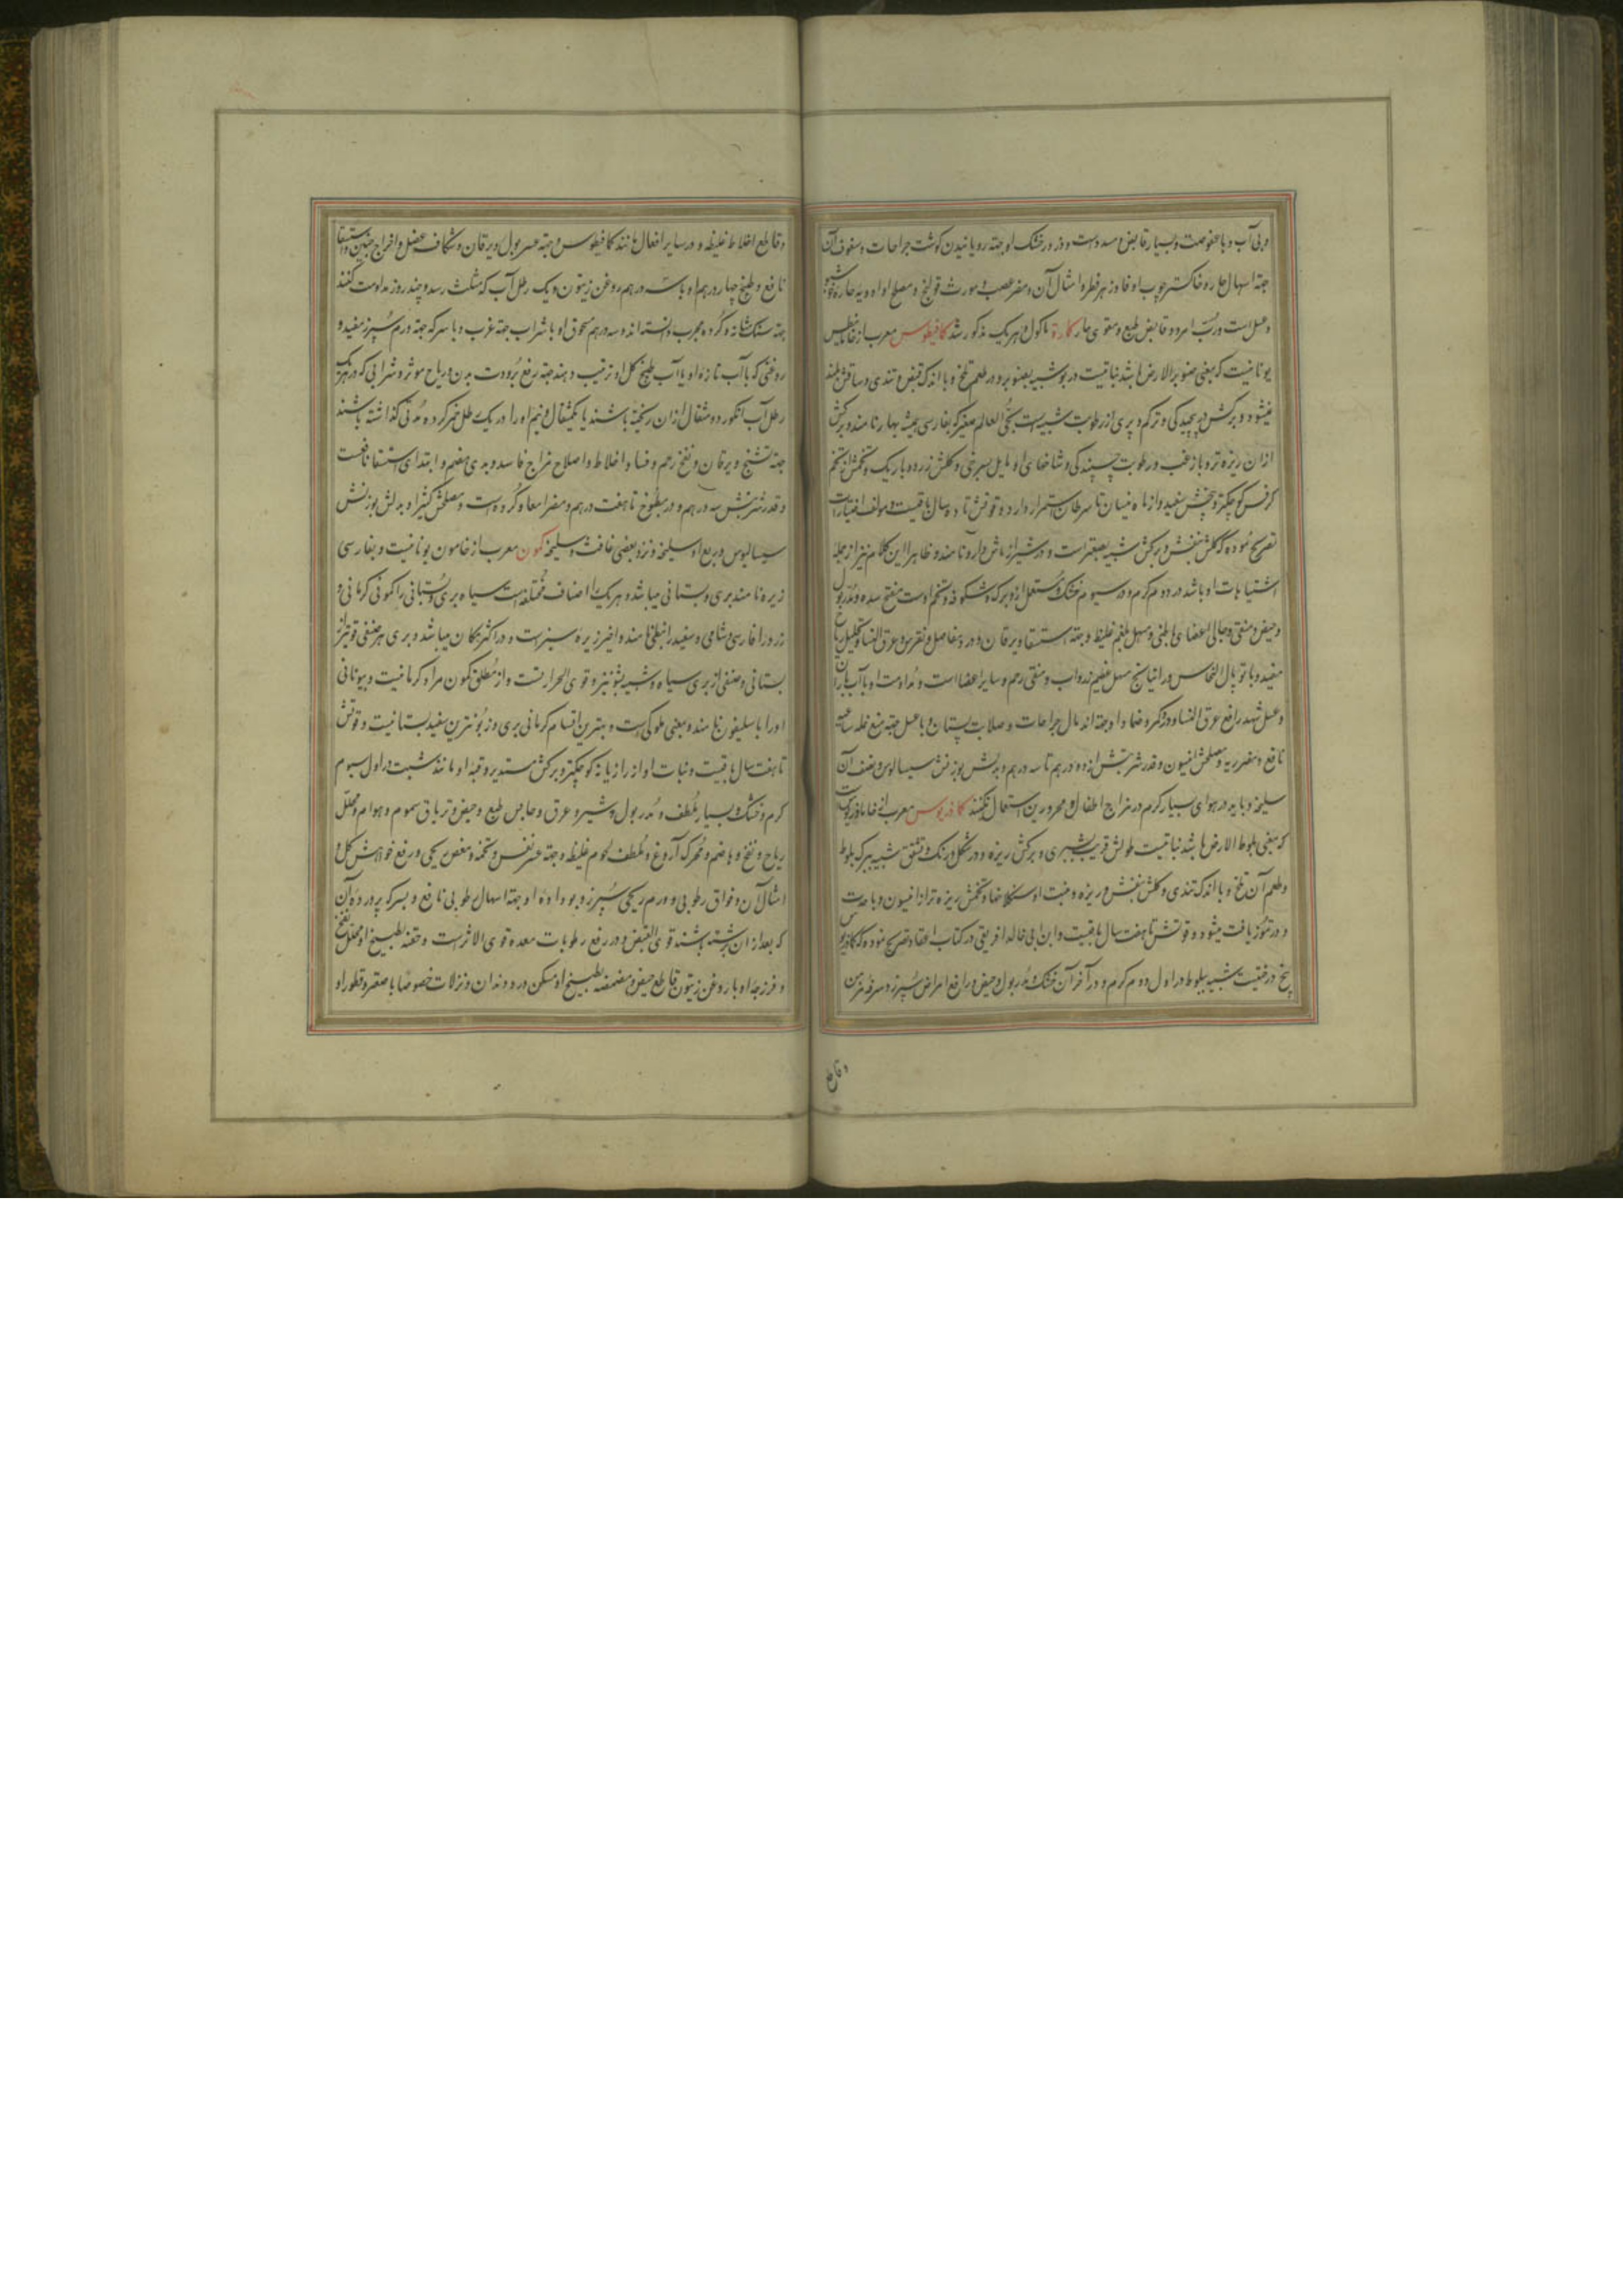 و بی آب و با عفوصت و بسیار قابض و مسدد است و ذرور خشک او جهته رویانیدن گوشت جراحات و سفوف آن
جهته اسهال حاره و خاکستر چوب او فادزهر فطر و امثال آن و مضر عصب و مورث قولنج و مصلح او ادویه حاره
و عسل است و رُبّ امرود قابض طبع و مقوی حار کارة ماکول او هریک مذکور شد کمافیطوس معرب از خامافیطس
یونانیست که بمعنی صنوبر الارض باشد نباتیست در بو شبیه بصنوبر و در طعم تلخ و با اندک قبض و تندی و ساقش بلند
نمیشود و برکش در پیچیدگی و تراکم و پری از رطوبت شبیه است بحیّ العالم صغیر که بفارسی همیشه بهار نامند و برکش
ازان ریزه تر و با زغب و رطوبت چسپندگی و شاخهای او مایل بسرخی و گلش زرد و باریک و تخمش از تخم
کرفس کوچکتر و بیخش سفید و از ماه نیسان تا سرطان استمرار دارد و قوتش تا ده سال باقیست و مولف اختیارات
تصریح نموده که گلش بنفش و برکش شبیه بصعتر است و در شیراز ماش دارو نامند و ظاهرا این کلام نیز از جمله
اشتباهات او باشد در دوم گرم و در سیوم خشک و مستعمل ازو برگ و شکوفه و تخم اوست مفتح سده و مُدرّ بول
و حیض و منقی و جالی اعضای باطنی و مسهل بلغم غلیظ و جهته استسقا و یرقان و درد مفاصل و نقرس و عرق النسا و تحلیل ریاح
مفید و با توبال النحاس و راتیانج مسهل عظیم زرداب و منقی رحم و سایر اعضا است و مداومت او با آب باران
و عسل شهد رافع عرق النسا و درد کمر و ضماد او جهته اندمال جراحات و صلابت پستان و با عسل جهته منع نمله ساعیه
نافع و مضر ریه و مصلحش انیسون و قدر شربتش از دو درهم تا سه درهم و بدلش بوزنش سیسالیوس و نصف آن
سلیخه و باید در هوای بسیار گرم در مزاج اطفال و محرورین استعمال نکنند کمادریوس معرب از خامادریوس است
که بمعنی بلوط الارض باشد نباتیست طولش قریب بشبری و برکش ریزه و در شکل و رنگ و تشقق شبیه ببرگ بلوط
و طعم آن تلخ و با اندک تندی و گلش بنفش و ریزه و منبت او سنگلاخها و تخمش ریزه تر از انیسون و با حدت
و در تموز یافت میشود و قوتش تا هفت سال باقیست و ابن ابی خالد افریقی در کتاب اعتماد تصریح نموده که کمادریوس
بیخ درختیست شبیه ببلوط در اول دوم گرم و در آخر آن خشک و مدر بول و حیض و رافع امراض سپرز و سرفه مزمن
و قاطع
و قاطع اخلاط غلیظه و در سایر افعال مانند کمافیطوس و جهته عسر بول و یرقان و شکاف عضل و اخراج جنین و استسقا
نافع و طبیخ چهار درهم او با شش درهم روغن زیتون و یک رطل آب که بثلث رسد و چند روز مداومت کنند
جهته سنگ مثانه و گرده مجرب دانسته اند و سه درهم سحوق او با شراب جهته غرب و با سرکه جهته ورم سپرز مفید و
روغنی که با آب تازه او یا آب طبیخ گل او ترتیب دهند جهته رفع برودت بدن و ریاح موثر و شرابی که در هریک
رطل آب انگور دو مثقال ازان ریخته باشند یا یکمثقال و نیم او را در یک رطل خمر کرده مدتی گذاشته باشند
جهته تشنج و یرقان و نفخ رحم و فساد اخلاط و اصلاح مزاج فاسد و بدی هضم و ابتدای استسقا نافعست
و قدر شربتش سه درهم و در مطبوخ تا هفت درهم و مضر امعا و گرده است و مصلحش کثیرا و بدلش بوزنش
سیسالیوس و ربع او سلیخه و نزد بعضی غافث و سلیخه کمون معرب از خامون یونانیست و بفارسی
زیره نامند بری و بستانی میباشد و هریک را اصناف مختلفه است سیاه بری و بستانی را کمونی کرمانی و
زرد را فارسی و شامی و سفید را نبطی نامند و اخیر زیره سبز است و در اکثر بلاد میباشد و بری هر صنفی قوی تر از
بستانی و صنفی از بری سیاه و شبیه بشونیز و قوی الحرارتست و از مطلق کمون مراد کرمانیست و بیونانی
او را باسلیقون نامند و بمعنی ملوکی است و بهترین اقسام کرمانی بری و زبون ترین سفید بستانیست و قوتش
تا هفت سال باقیست و نبات او از رازیانه کوچکتر و برکش مستدیر و قبه او مانند شبت در اول سیوم
گرم و خشک و بسیار ملطف و مدر بول و شیر و عرق و حابس طبع و حیض و تریاق سموم و هوام و محلل
ریاح و نفخ و هاضم و محرک آروغ و ملطف لحوم غلیظه و جهته عسر نفس و تخمه و مغص ریحی و رفع خواهش گل و
امثال آن و فواق رطوبی و ورم ریحی سپرز و بو دادهٔ او جهته اسهال رطوبی نافع و بسرکه پروردهٔ آن
که بعد ازان برشته باشند قوی القبض و در رفع رطوبات معده قوی الاثر است و حقنه بطبیخ او محلل نفخ
و فرزجهٔ او با روغن زیتون قاطع حیض و مضمضه بطبیخ او مسکن درد دندان و نزلات خصوصا با صعتر و قطور او